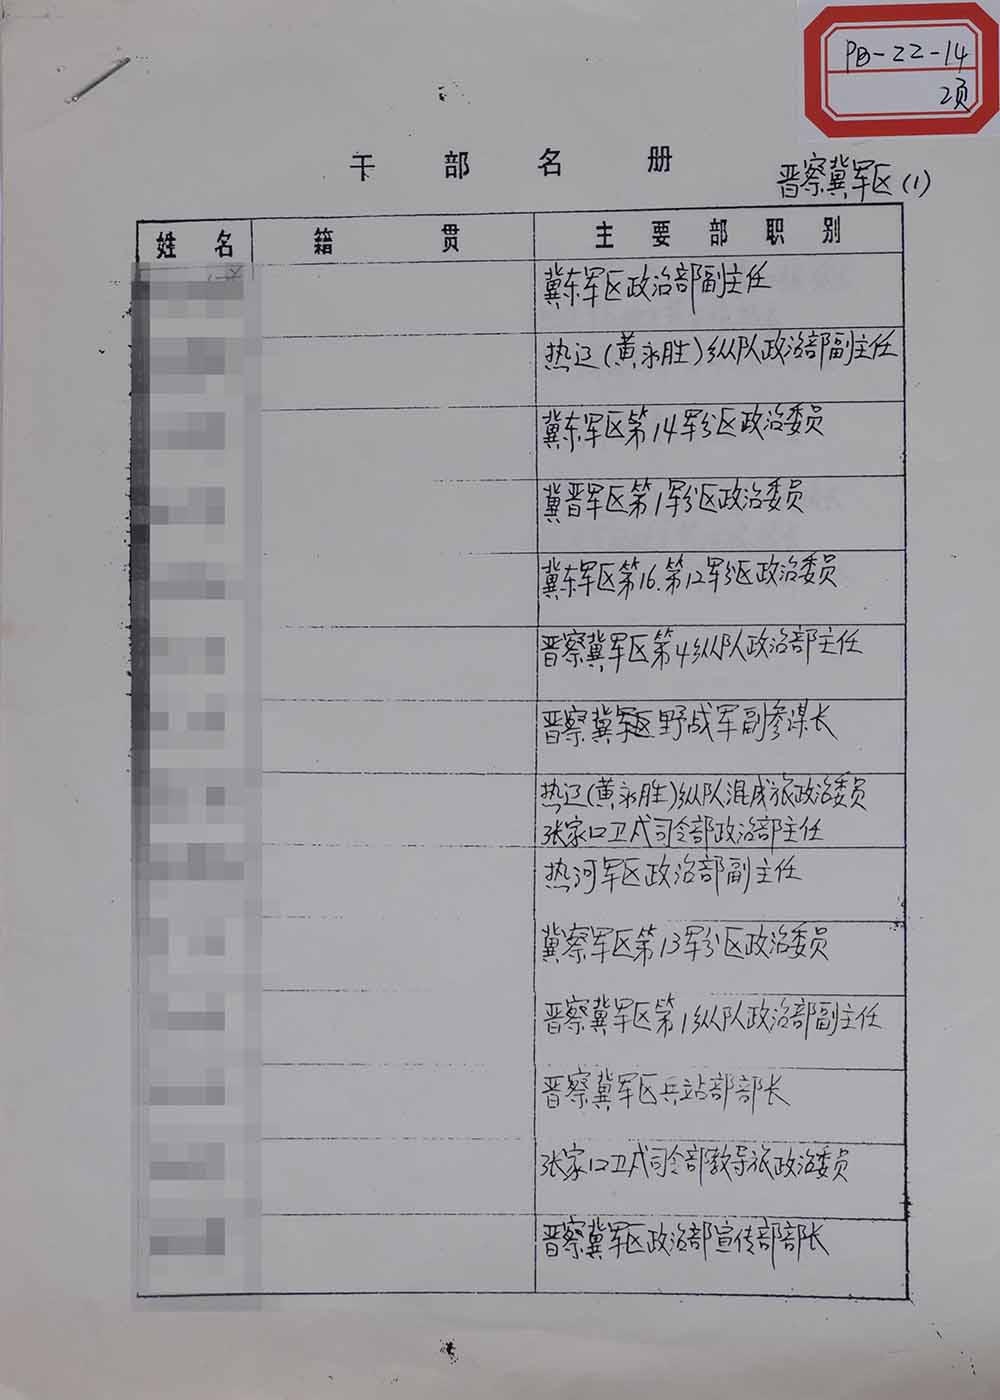 PB-22-14
2页
干部名册
晋察冀军区(1)
姓名 籍贯 主要部职别
冀东军区政治部副主任
热辽(黄永胜)纵队政治部副主任
冀东军区第14军分区政治委员
冀晋军区第1军分区政治委员
冀东军区第16.第12军分区政治委员
晋察冀军区第4纵队政治部主任
晋察冀军区野战军副参谋长
热辽(黄永胜)纵队混成旅政治委员
张家口卫戍司令部政治部主任
热河军区政治部副主任
冀察军区第13军分区政治委员
晋察冀军区第1纵队政治部副主任
晋察冀军区兵站部部长
张家口卫戍司令部教导旅政治委员
晋察冀军区政治部宣传部部长